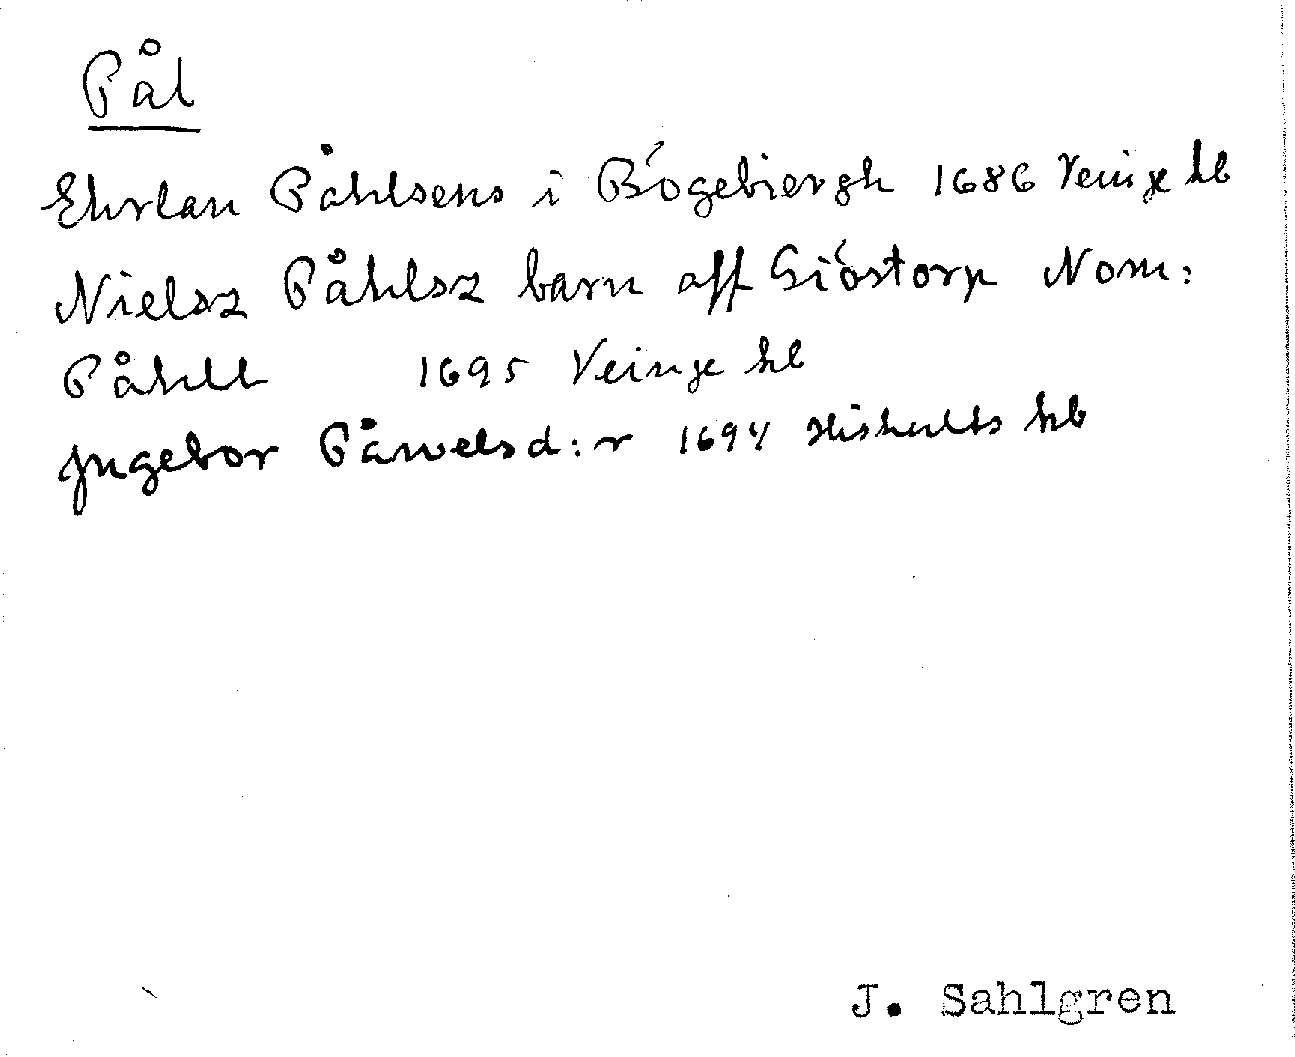 Pål
Ehrlan Påhlsens i Bógebiergh 1686 Veinge kb
Nielsz Påhlsz barn aff Gióstorp Nom:
Påhll 1695 Veinge kb
Jngebor Påwelsd:r 1694 Hishults kb
J. Sahlgren